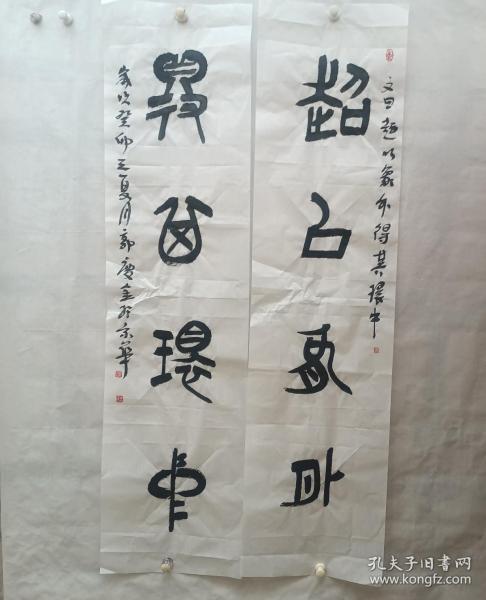 超以象外
文曰超以象外得其環中
得其環中
歲次癸卯之夏月郭慶金於京華
孔夫子旧书网
www.kongfz.com